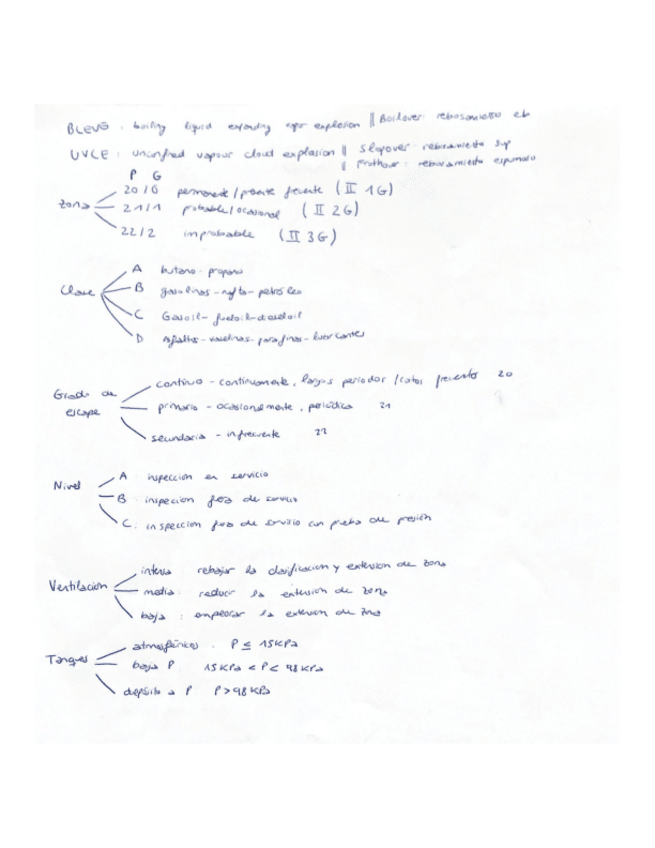 BLEVE: boiling liquid expanding vapor explosion || Boilover: rebosamiento eb
UVCE: unconfined vapour cloud explosion || Slopover: rebosamiento sup
|| Frothover: rebosamiento espumoso
P G
Zona
20/0 permanente / presente frecuente (II 1G)
21/1 probable/ocasional (II 2G)
22/2 improbable (II 3G)
Clase
A butano - propano
B gasolinas - nafta - petróleo
C Gasoil - fueloil - dieseloil
D Asfaltos - vaselinas - parafinas - lubricantes
Grado de escape
continuo - continuamente, largos periodos / cortos frecuentes 20
primario - ocasionalmente, periódica 21
secundario - infrecuente 22
Nivel
A inspección en servicio
B inspección fuera de servicio
C: inspección fuera de servicio con prueba de presión
Ventilación
intensa rebajar la clasificación y extensión de zona
media: reducir la extensión de zona
baja: empeorar la extensión de zona
Tanques
atmosféricos. P ≤ 15KPa
baja P 15KPa < P < 98KPa
depósito a P P > 98KPa